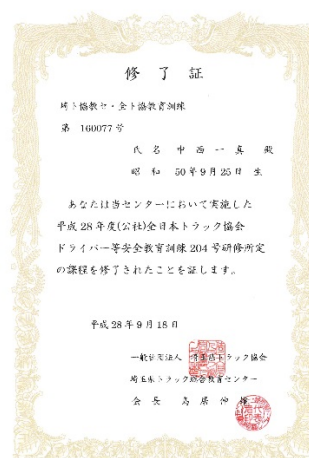 修了証
埼ト協教セ・全ト協教育訓練
第 160077号
氏名 中西一真 殿
昭和 50年9月25日 生
あなたは当センターにおいて実施した
平成28年度(公社)全日本トラック協会
ドライバー等安全教育訓練204号研修所定
の課程を修了されたことを証します。
平成28年9月18日
一般社団法人 埼玉県トラック協会
埼玉県トラック総合教育センター
会長 鳥居伸雄